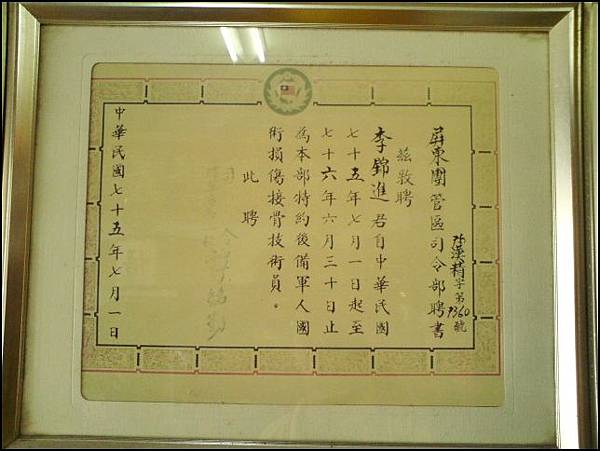 屏東團管區司令部聘書
漢精字第7360號
茲敦聘
李錦進君自中華民國
七十五年七月一日起至
七十六年六月三十日止
為本部特約後備軍人國
術損傷接骨技術員。
此聘
中華民國七十五年七月一日